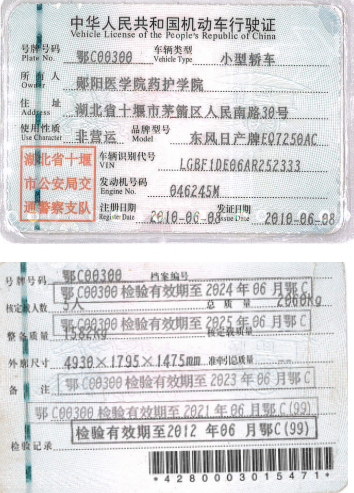 中华人民共和国机动车行驶证
Vehicle License of the People's Republic of China
号牌号码 鄂C00300 车辆类型 小型轿车
Plate No. Vehicle Type
所有人 郧阳医学院药护学院
Owner
住址 湖北省十堰市茅箭区人民南路30号
Address
使用性质 非营运 品牌型号 东风日产牌EQ7250AC
Use Character Model
湖北省十堰
市公安局交
通警察支队
车辆识别代号 LGBF1DE06AR252333
VIN
发动机号码 046245M
Engine No.
注册日期 2010-06-08 发证日期 2010-06-08
Register Date Issue Date
号牌号码 鄂C00300 档案编号
鄂C00300 检验有效期至 2024 年 06 月鄂 C
核定载人数 5人 总质量 2060kg
鄂C00300 检验有效期至 2025 年 06 月鄂 C
整备质量 1562kg 核定载质量
外廓尺寸 4930×1795×1475mm 准牵引总质量
备注 鄂C00300 检验有效期至 2023 年 06 月鄂 C
鄂C00300 检验有效期至 2021 年 06 月鄂 C(99)
检验有效期至2012 年06 月鄂 C(99)
检验记录
*4280003015471*